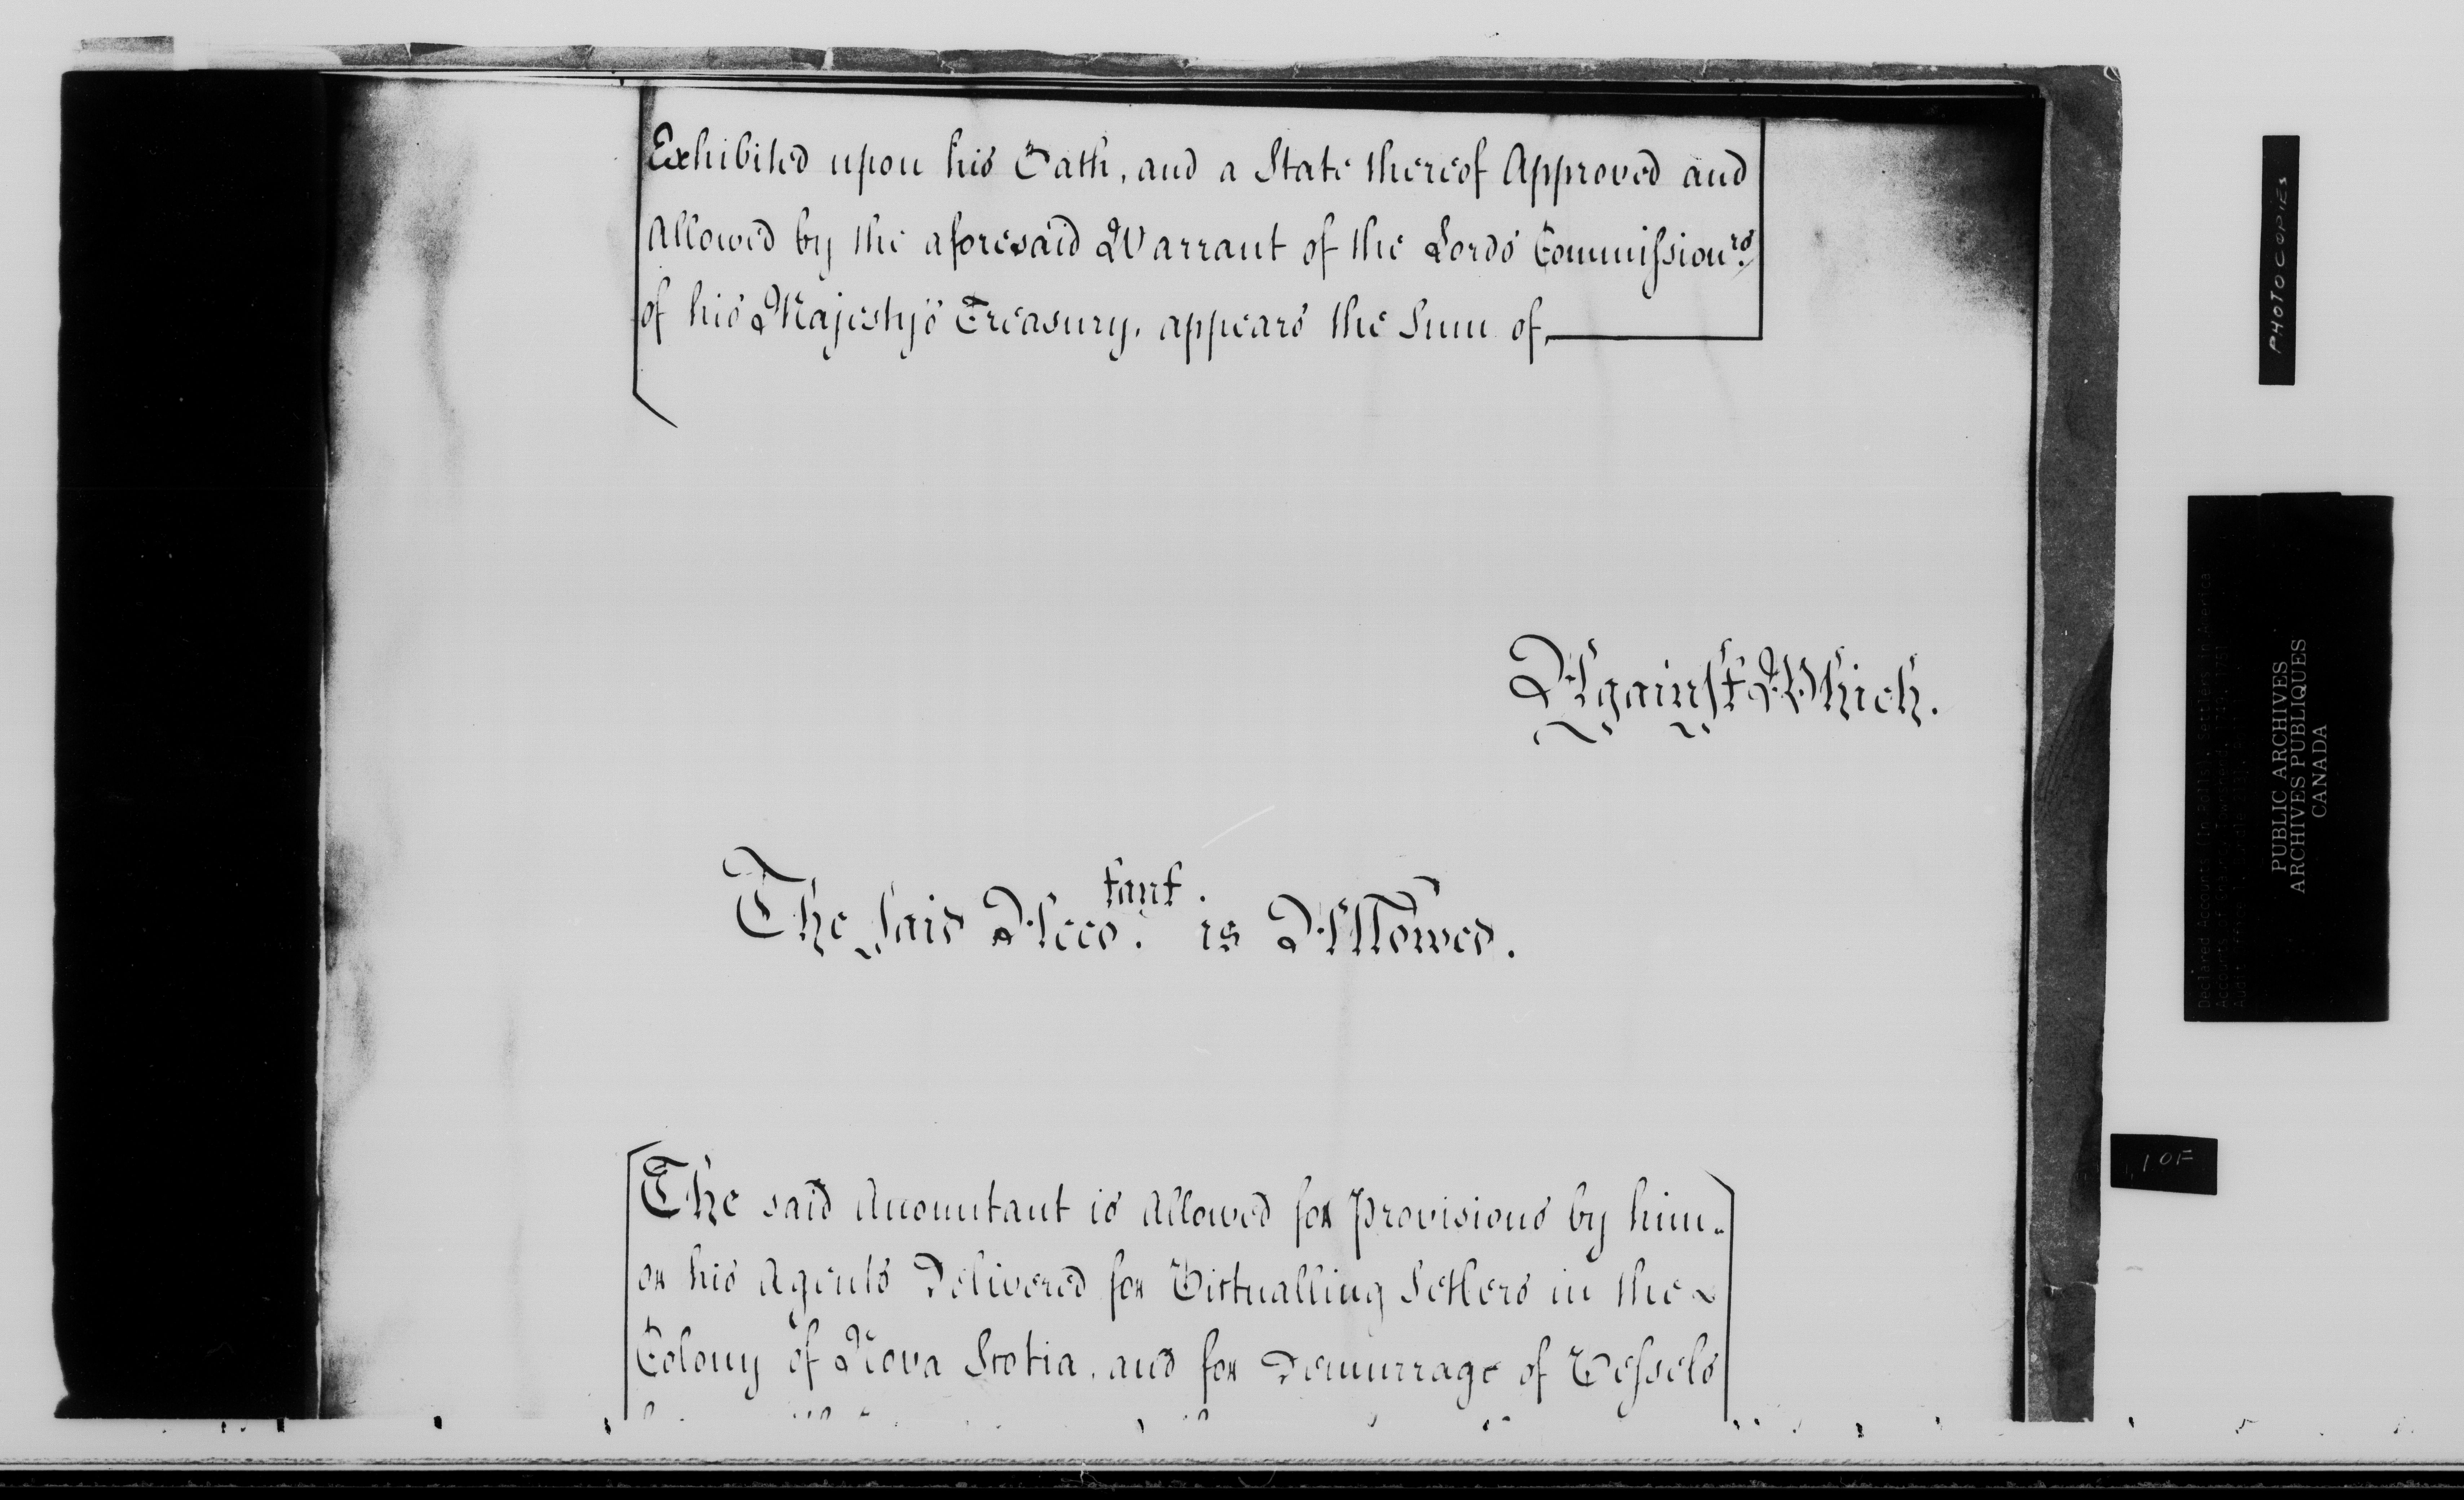 Exhibited upon his Oath, and a State thereof Approved and
Allowed by the aforesaid Warrant of the Lords Commissionrs.
of his Majesty's Treasury, appears the Sum of
Against Which.
The Said Accotant. is Allowed.
The said Accountant is Allowed for Provisions by him
or his Agents Delivered for Victualling Setlers in the
Colony of Nova Scotia, and for Demurrage of Vessels
PHOTOCOPIES
Declared Accounts (in Rolls), Settlers in America
PUBLIC ARCHIVES
ARCHIVES PUBLIQUES
CANADA
10F